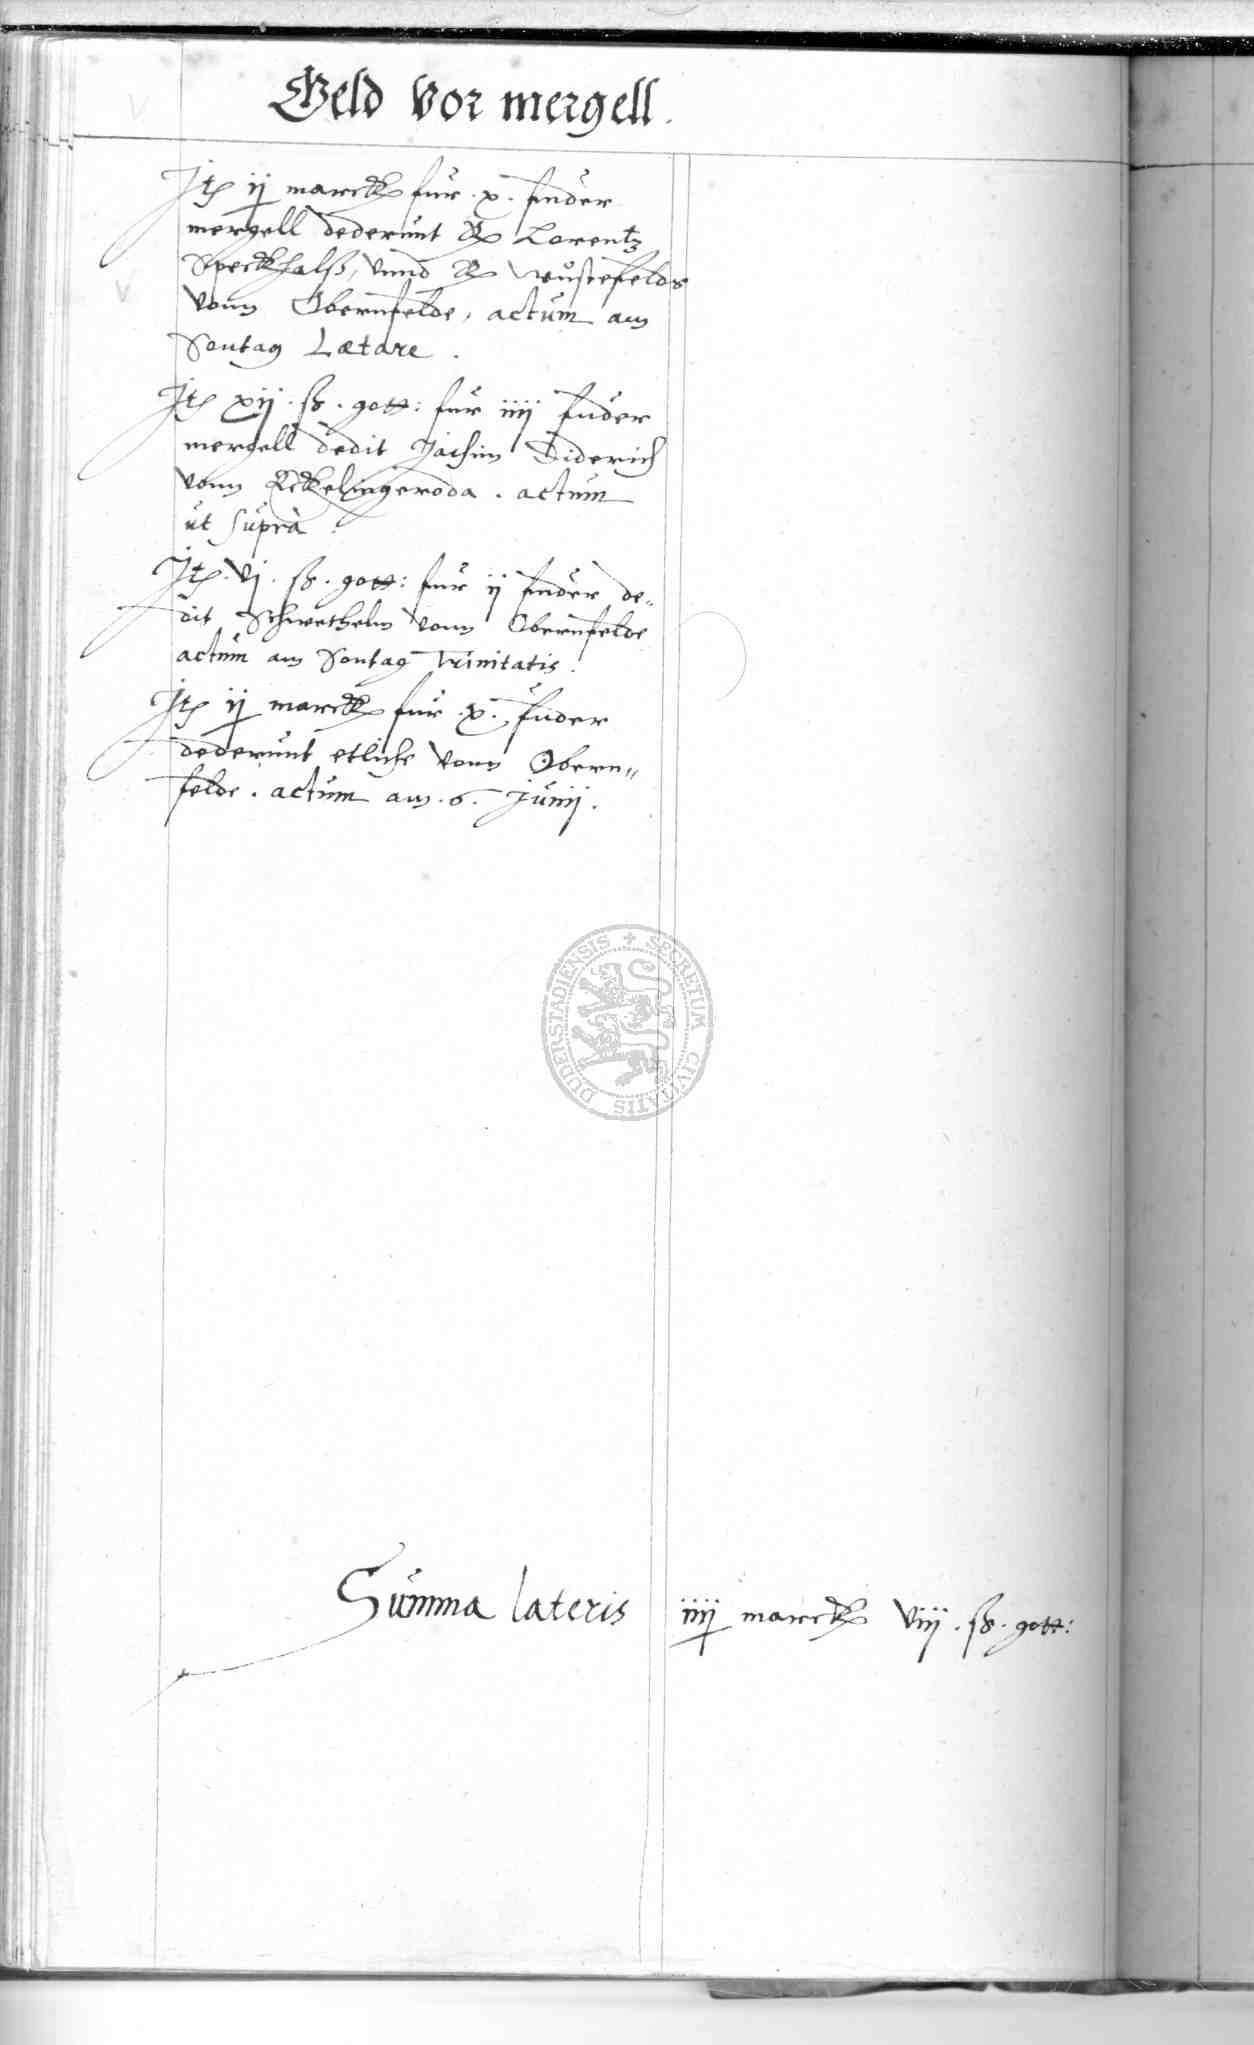 Geld vor mergell.
Itē ij marck fur .x. fuder
mergell dederunt Lorentz
Speckhalß, vnnd Wustefeldt
vonn Obernfelde, actum am
Sontag Lætare.
Itē xij. ß. gott: fur iiij fuder
mergell dedit Jachim Diderich
vonn Eckelingeroda. actum
ut supra
Itē. vj. ß. gott: fur ij fuder de=
dit Schwethelm vonn Obernfelde
actum am Sontag Trinitatis.
Itē ij marck fur .x. fuder
dederunt etliche vonn Obern=
felde. actum am .6. Junij.
DUDERSTADIENSIS + SECRETUM CIVITATIS
Summa lateris iiij marck viij. ß. gott: